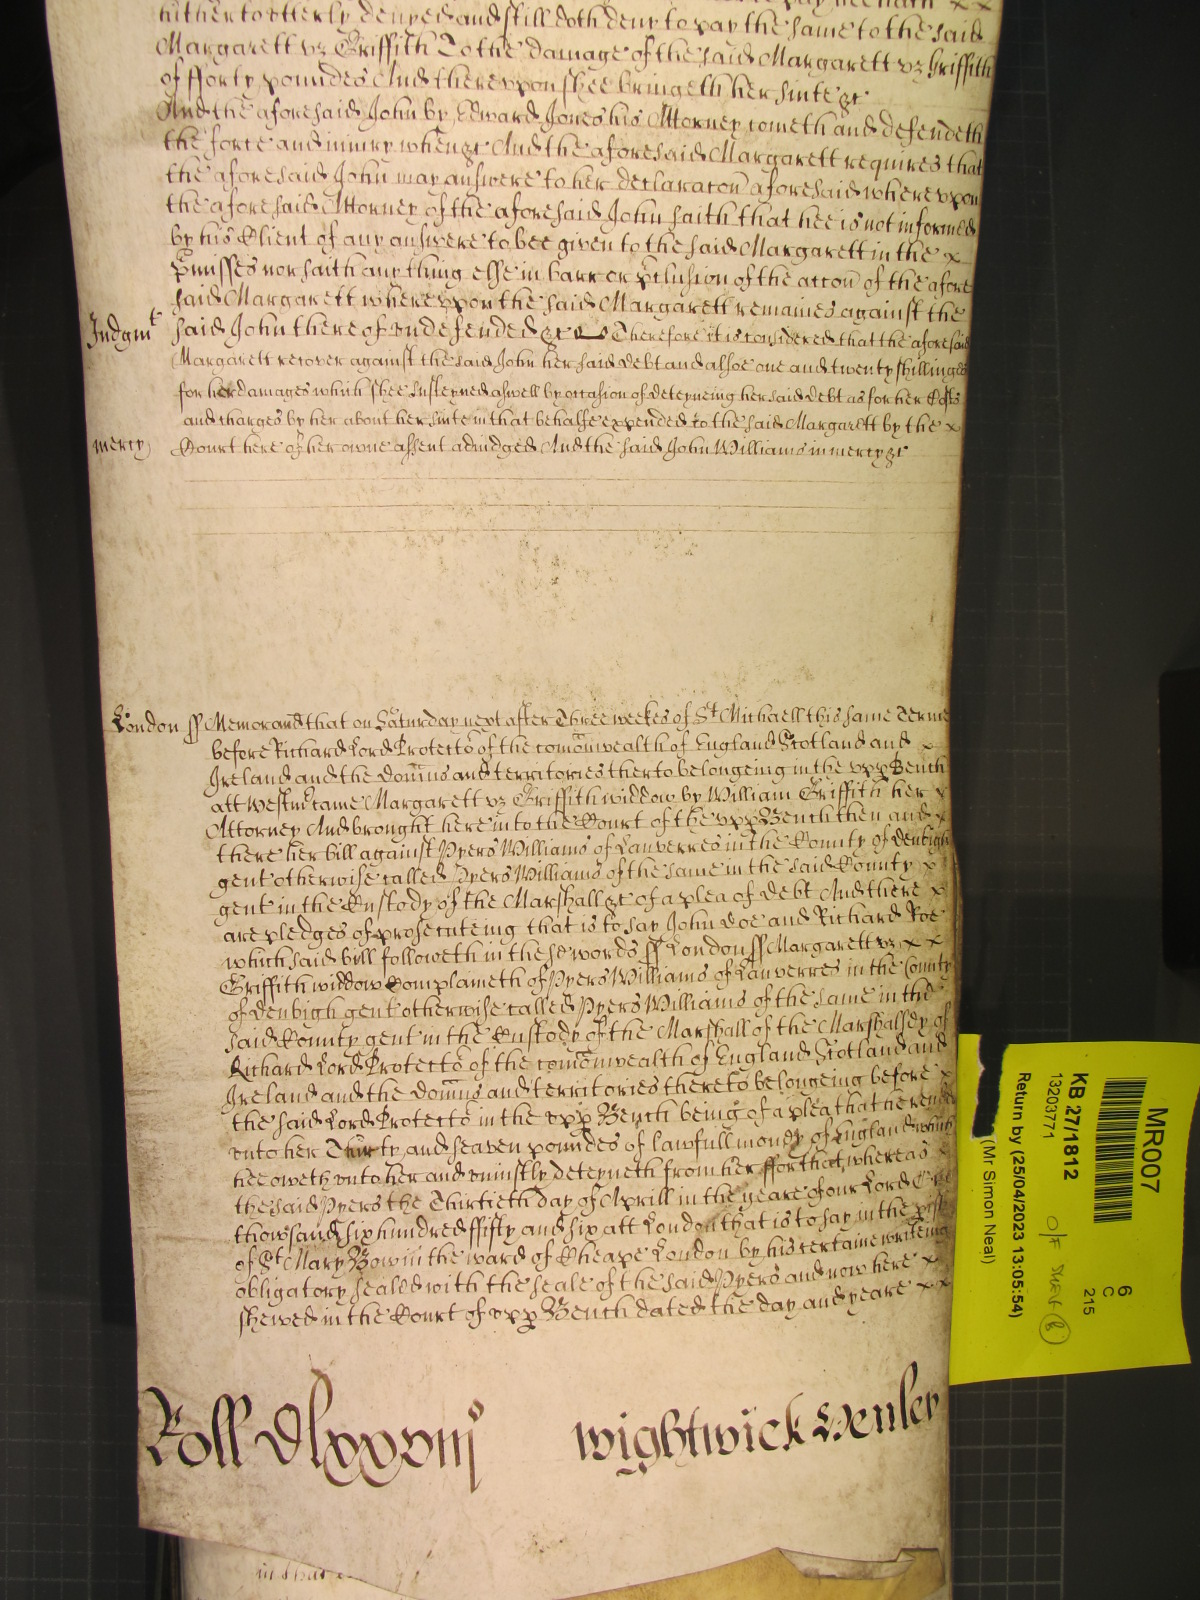 hitherto utterly denyed and still doth deny to pay the same to the said
Margarett vz Griffith To the damage of the said Margarett vz Griffith
of fforty poundes And thereuppon shee bringeth her suite &c
And the aforesaid John by Edward Jones his Attorney cometh and defendeth
the force and iniury when &c And the aforesaid Margarett requires that
the aforesaid John may answere to her declaracon aforesaid whereuppon
the aforesaid Attorney of the aforesaid John saith that hee is not informed
by his Client of any answere to bee given to the said Margarett in the x
pmisses nor saith any thing else in barr or pclusion of the accon of the afore
said Margarett whereuppon the said Margarett remaines against the
Judgmt said John thereof undefended &c Therefore it is considered that the aforesaid
Margarett recover against the said John her said Debt and alsoe one and twenty shillinges
for her damages which shee susteyned aswell by occasion of deteyneing her said debt as for her Costs
and charges by her about her suite in that behalfe expended to the said Margarett by the x
mercy Court here of her owne assent adiudged And the said John Williams in mercy &c
London ss Memorand that on Saturday next after Three weekes of St Michaell this same Terme
before Richard Lord Protector of the comonwealth of England Scotland and x
Ireland and the domins and territories therto belongeing in the upp Bench
att Westmr came Margarett vz Griffith widdow by William Griffith her x
Attorney And brought here into the Court of the upp Bench then and x
there her bill against Pyers Williams of Lanverres in the County of Denbigh
gent otherwise called Pyers Williams of the same in the said County x
gent in the Custody of the Marshall &c of a plea of debt And there x
are pledges of prosecuteing that is to say John Doe and Richard Roe
which said bill followeth in these words ss London ss Margarett vz x x
Griffith widdow Complaineth of Pyers Williams of Lanverres in the County
of Denbigh gent otherwise called Pyers Williams of the same in the
said County gent in the Custody of the Marshall of the Marshallsey of
Richard Lord Protector of the comonwealth of England Scotland and
Ireland and the domins and territories thereto belongeing before x
the said Lord Protector in the upp Bench being of a plea that he render
unto her Thirty and seaven poundes of lawfull money of England which
hee oweth unto her and uniustly deteyneth from her ffor that whereas x
the said Pyers the Thirtieth day of Aprill in the yeare of our Lord One
thowsand six hundred fifty and six att London that is to say in the pish
of St Mary Bow in the ward of Cheape London by his certaine writeing
obligatory seald with the seale of the said Pyers and now here x
shewed in the Court of upp Bench dated the day and yeare x x
Roll Dlxxviijo wightwick Henley
MR007
6
C
215
KB 27/1812
13203771
Return by (25/04/2023 13:05:54)
(Mr Simon Neal)